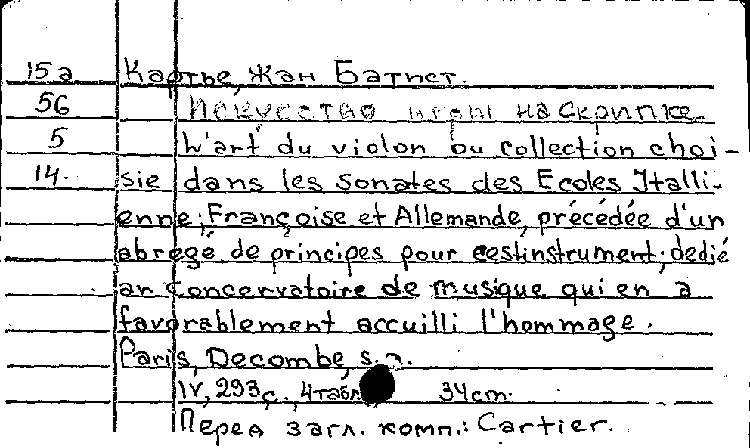 15а Картье, Жан Батист.
56 Искусство игры на скрипке
5 L'art du violon ou collection choi-
14. sie dans les Sonates des Ecoles Itali-
enne; Françoise et Allemande, précédée d'un
abregé de principes pour cestinstrument; dedié
au Concervatoire de musique qui en a
favorablement accuilli l'hommage.
Paris, Decombe, s.a.
IV, 293с., 4 табл. 34cm.
Перед загл. комп.: Cartier.